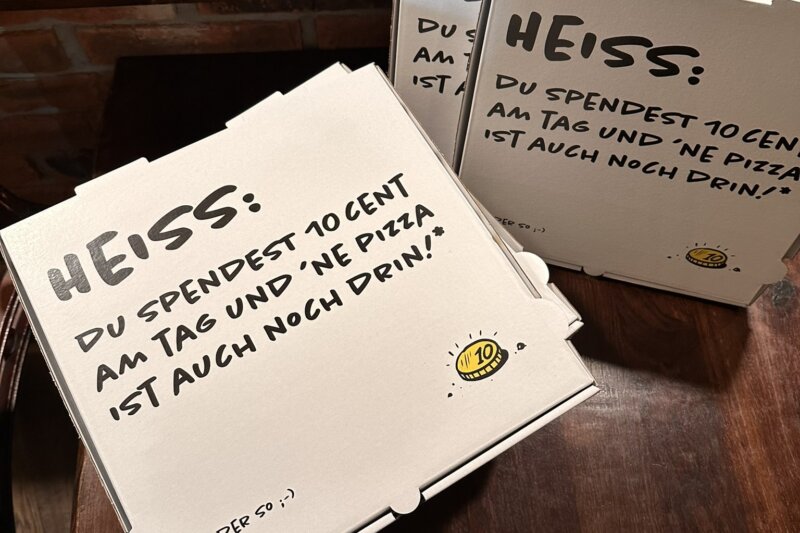 HEISS:
DU SPENDEST 10 CENT
AM TAG UND 'NE PIZZA
IST AUCH NOCH DRIN!*
10
SO ;-)
DU
AM
IST
HEISS:
DU SPENDEST 10 CENT
AM TAG UND 'NE PIZZA
IST AUCH NOCH DRIN!*
SO ;-)
10